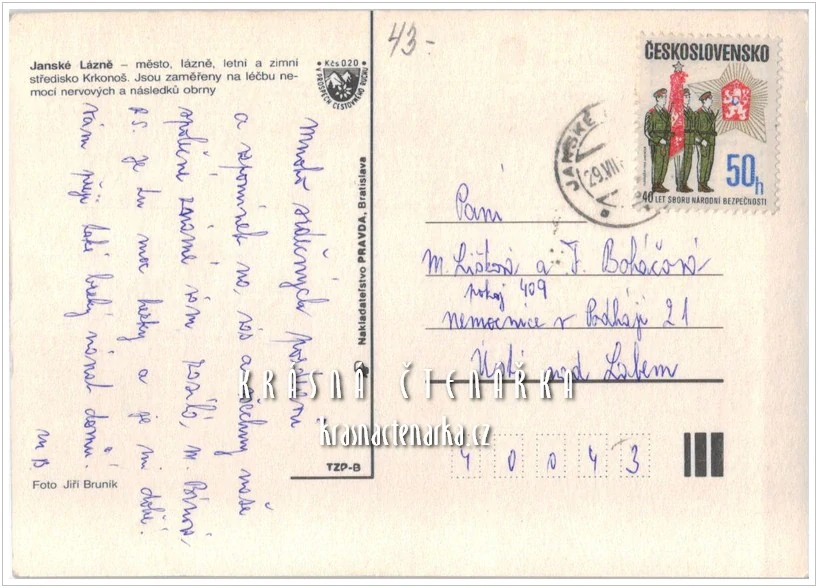 43-
Janské Lázně – město, lázně, letní a zimní
středisko Krkonoš. Jsou zaměřeny na léčbu ne-
mocí nervových a následků obrny
Kčs 0,20
V PROSPĚCH CESTOVNÍHO RUCHU
ČESKOSLOVENSKO
50h
40 LET SBORU NÁRODNÍ BEZPEČNOSTI
JANSKÉ
29.VII.
Mnoho srdečných pozdravů
a vzpomínek na vás a všechny naše
společné známé vám zasílá, M.
P.S. Je tu moc hezky a je mi dobře.
Vám přeji také brzký návrat domů.
MB
Nakladatelství PRAVDA, Bratislava
Paní
M. Lišková a F. Boháčová
pokoj 409
nemocnice v Podhájí 21
Ústí nad Labem
KRÁSNÁ ČTENÁŘKA
krasnactenarka.cz
40043
TZP-B
Foto Jiří Bruník